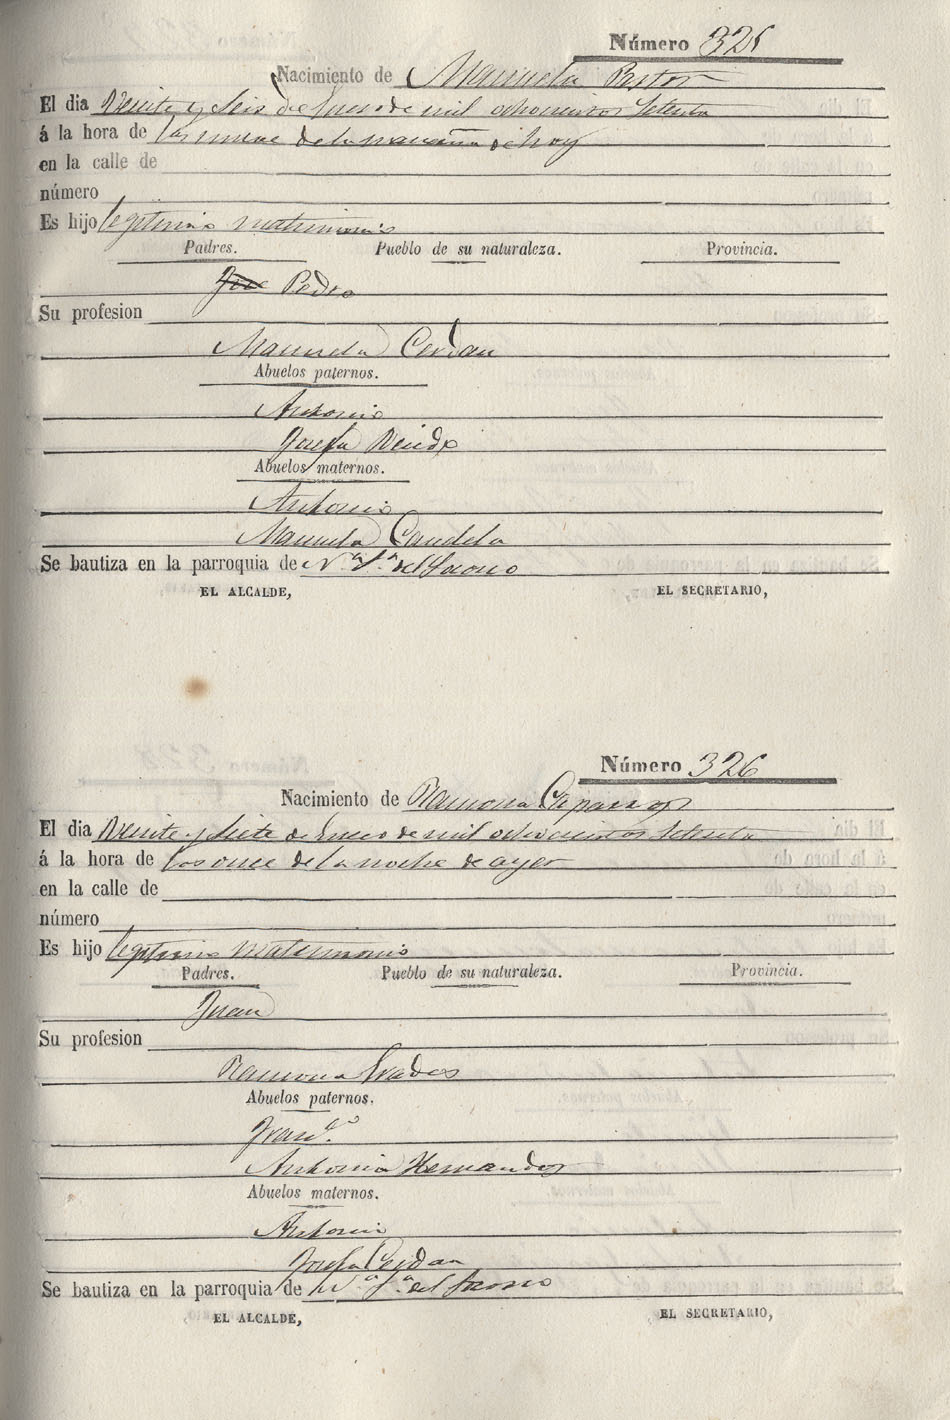 Número 325
Nacimiento de Manuela Pastor
El dia Veinte y Seis de Enero de mil ochocientos Setenta
á la hora de las nueve de la mañana de hoy
en la calle de
número
Es hijo legitimo matrimonio
Padres. Pueblo de su naturaleza. Provincia.
José Pedro
Su profesion
Manuela Cerdan
Abuelos paternos.
Antonio
Josefa
Abuelos maternos.
Antonio
Manuela Candela
Se bautiza en la parroquia de N.ª S.ª del Socorro
EL ALCALDE, EL SECRETARIO,
Número 326
Nacimiento de Ramona Caparros
El dia Veinte y Siete de Enero de mil ochocientos Setenta
á la hora de las once de la noche de ayer
en la calle de
número
Es hijo legitimo matrimonio
Padres. Pueblo de su naturaleza. Provincia.
Juan
Su profesion
Ramona Prados
Abuelos paternos.
Fran.co
Antonia Hernandez
Abuelos maternos.
Antonio
Josefa Cerdan
Se bautiza en la parroquia de N.ª S.ª del Socorro
EL ALCALDE, EL SECRETARIO,